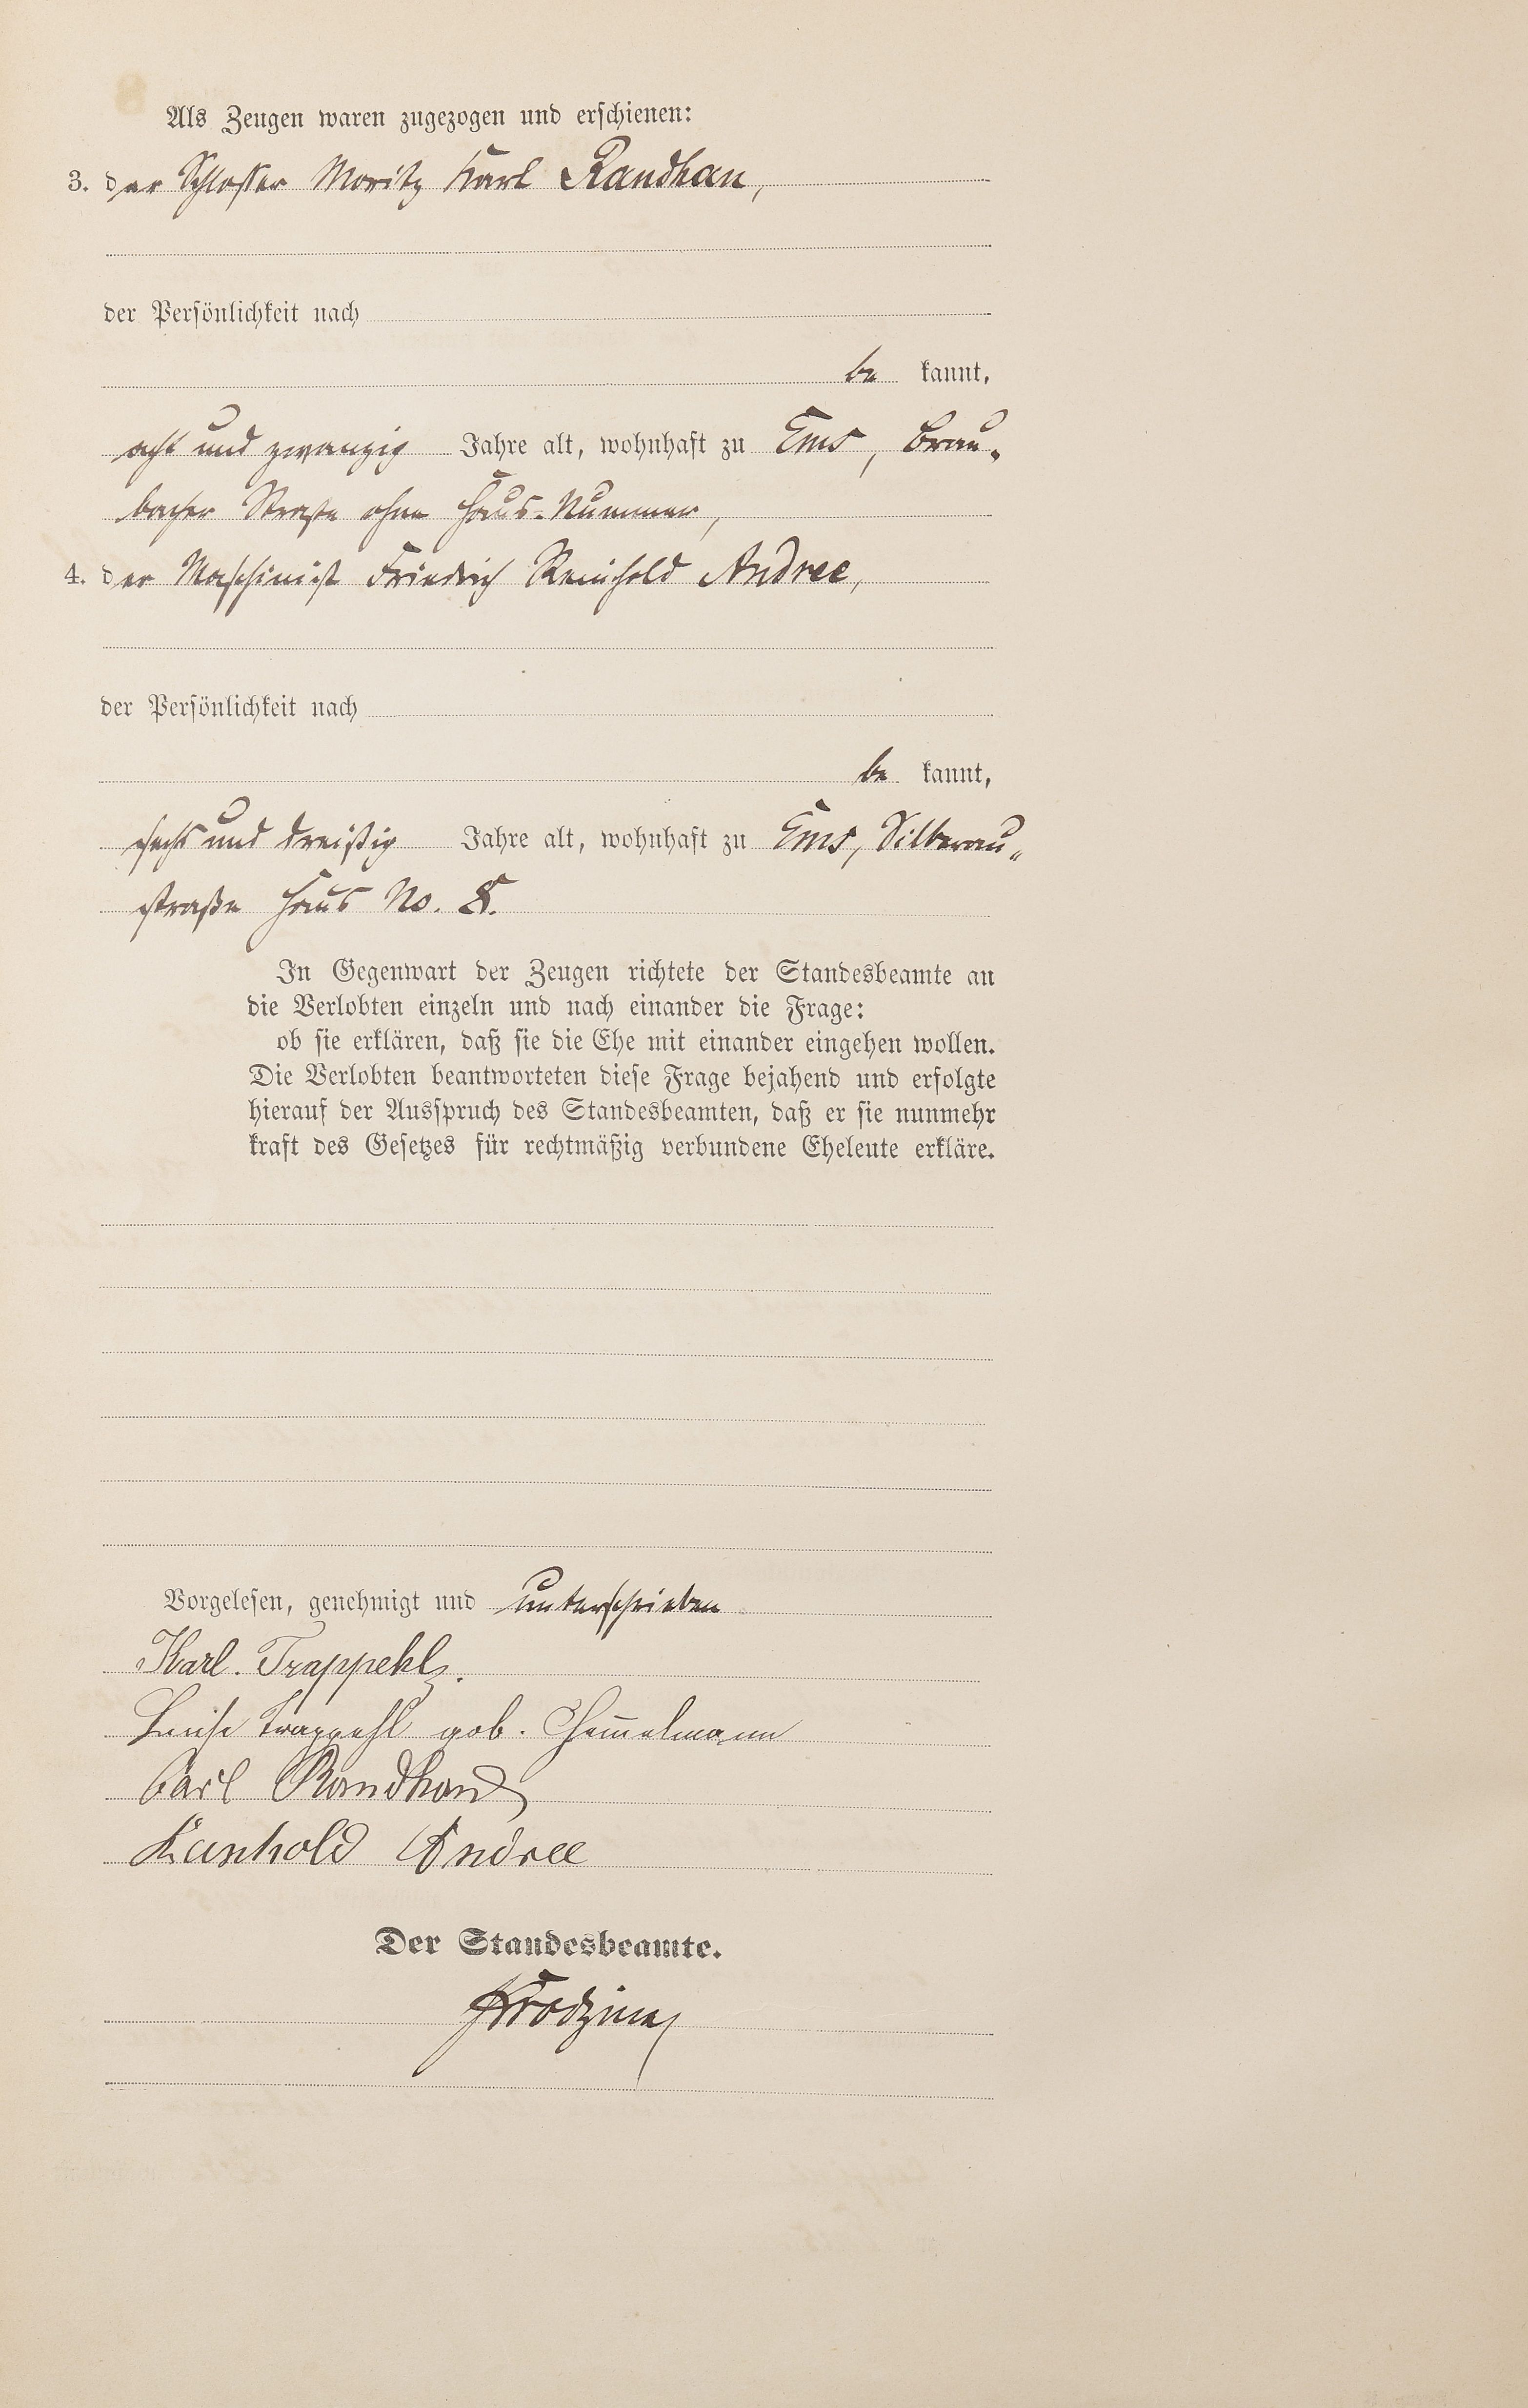 Als Zeugen waren zugezogen und erschienen:
3. der Schlosser Moritz Karl Randhan,
der Persönlichkeit nach
be kannt,
acht und zwanzig Jahre alt, wohnhaft zu Ems, Brau-
bacher Straße ohne Haus-Nummer,
4. der Maschinist Friedrich Reinhold Andree,
der Persönlichkeit nach
be kannt,
sechs und dreißig Jahre alt, wohnhaft zu Ems, Silberau-
straße Haus No. 8.
In Gegenwart der Zeugen richtete der Standesbeamte an
die Verlobten einzeln und nach einander die Frage:
ob sie erklären, daß sie die Ehe mit einander eingehen wollen.
Die Verlobten beantworteten diese Frage bejahend und erfolgte
hierauf der Ausspruch des Standesbeamten, daß er sie nunmehr
kraft des Gesetzes für rechtmäßig verbundene Eheleute erkläre.
Vorgelesen, genehmigt und unterschrieben
Karl. Trappehl.
Luise Trappehl geb.
Carl Randhan
Reinhold Andree
Der Standesbeamte.